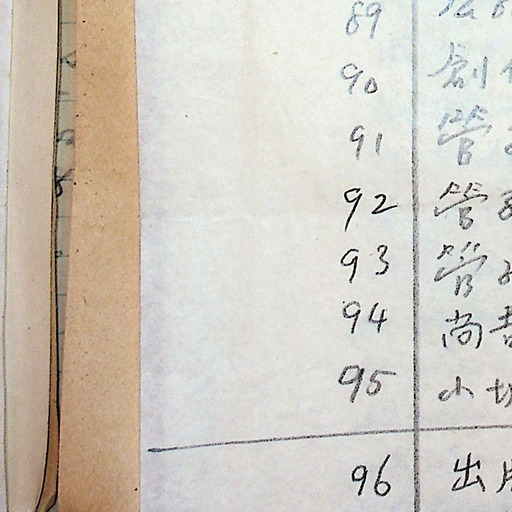 89
90 創
91 管
92 管
93 管
94 尚書
95 小
96 出版